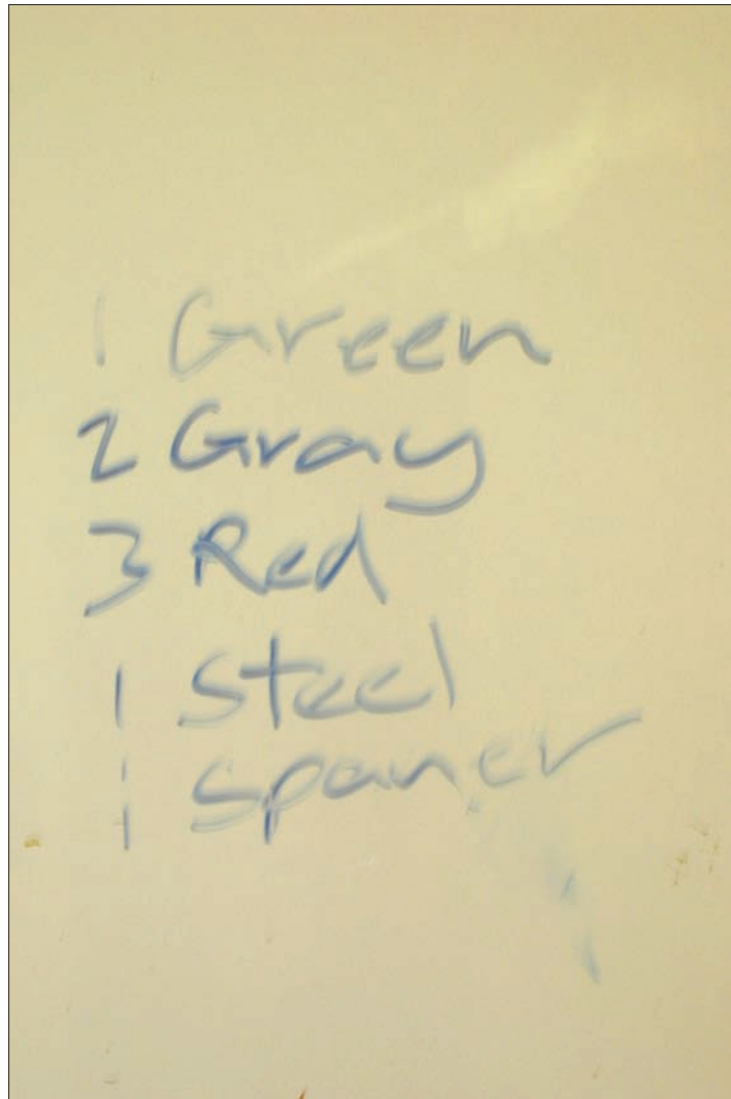 1 Green
2 Gray
3 Red
1 Steel
1 Spaner